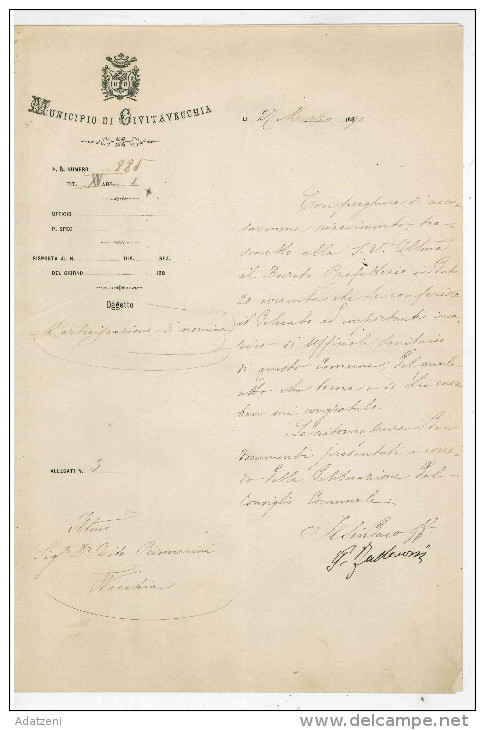 MUNICIPIO DI CIVITAVECCHIA
LI 27 Marzo 1890
P. G. NUMERO 885
TIT. XV ART. 1
UFFICIO
P. SPEC
RISPOSTA AL N. DIV. SEZ.
DEL GIORNO 188
Oggetto
Partecipazione di nomina
ALLEGATI N. 3
Con preghiera di accu-
sarmene ricevimento, tra-
smetto alla S. V. Illma
il Decreto Prefettizio in data
20 corrente che le conferisce
il delicato ed importante inca-
rico di Ufficiale Sanitario
di questo Comune, del quale
atto che torna a di Lei
ben mi congratulo.
Le ritorno pure i due
documenti presentati a corre-
do della deliberazione del
Consiglio Comunale.
Il Sindaco ff.
Illmo
Sig. Dr Vito
Civitavecchia
Adatzeni
www.delcampe.net